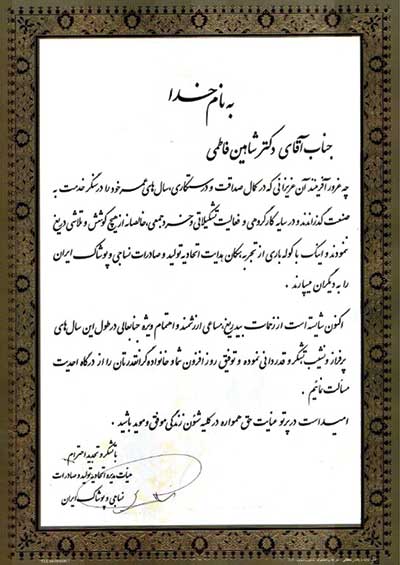 به نام خدا
جناب آقای دکتر شاهین فاطمی
چه غرور آفرینند آن عزیزانی که در کمال صداقت و درستکاری، سال های عمر خود را در سنگر خدمت به
صنعت گذراندند و در سایه کار گروهی و فعالیت تشکیلاتی و خرد جمعی، خالصانه از هیچ کوشش و تلاشی دریغ
ننمودند و اینک با کوله باری از تجربه سکان هدایت اتحادیه تولید و صادرات نساجی و پوشاک ایران
را به دیگران میسپارند .
اکنون شایسته است از زحمات بیدریغ، مساعی ارزشمند و اهتمام ویژه جنابعالی در طول این سال های
پرفراز و نشیب تشکر و قدردانی نموده و توفیق روز افزون شما و خانواده گرانقدرتان را از درگاه احدیت
مسألت نمائیم .
امید است در پرتو عنایت حق همواره در کلیه شئون زندگی موفق و موید باشید .
با تشکر و تجدید احترام
هیأت مدیره اتحادیه تولید و صادرات
نساجی و پوشاک ایران